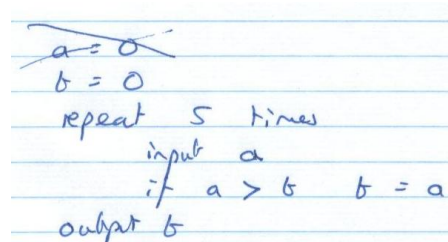 a = 0
b = 0
repeat 5 times
input a
if a > b b = a
output b